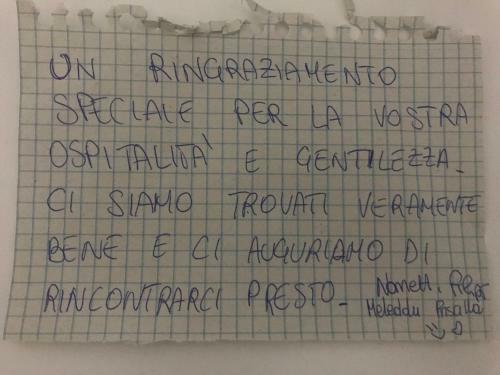 UN RINGRAZIAMENTO
SPECIALE PER LA VOSTRA
OSPITALITÀ E GENTILEZZA.
CI SIAMO TROVATI VERAMENTE
BENE E CI AUGURIAMO DI
RINCONTRARCI PRESTO.
Meleddu